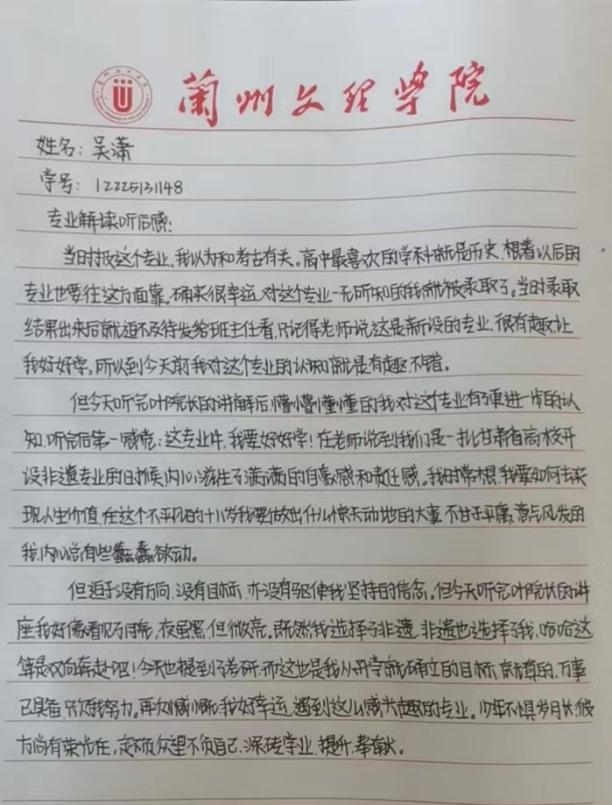 兰州文理学院
姓名：吴潇
学号：12225131148
专业解读听后感：
当时报这个专业，我认为和考古有关。高中最喜欢的学科就是历史，想着以后的
专业也要往这方面靠。确实很幸运，对这个专业一无所知的我就被录取了。当时录取
结果出来后就迫不及待发给班主任看，只记得老师说这是新设的专业，很有趣让
我好好学。所以到今天前我对这个专业的认知就是有趣、不错。
但今天听完叶院长的讲解后，懵懵懂懂的我对这个专业有了更进一步的认
知。听完后第一感觉：这专业牛，我要好好学！在老师说到我们是一批甘肃省高校开
设非遗专业的时候，内心滋生了满满的自豪感和责任感。我时常想，我要如何去实
现人生价值，在这个不平凡的十八岁我要做出什么惊天动地的大事，不甘于平庸，意气风发的
我，内心总有些蠢蠢欲动。
但迫于没有方向，没有目标，亦没有驱使我坚持的信念。但今天听完叶院长的讲
座我好像看见了月亮，夜虽黑，但微亮。既然我选择了非遗，非遗也选择了我，哈哈这
算是双向奔赴吧！今天也提到了考研，而这也是我从开学就确立的目标，万事
已具备，只欠我努力。再次感慨我好幸运，遇到这么感兴趣的专业。少年不惧岁月长，彼
方尚有荣光在，定不负众望不负自己，深砖学业，提升